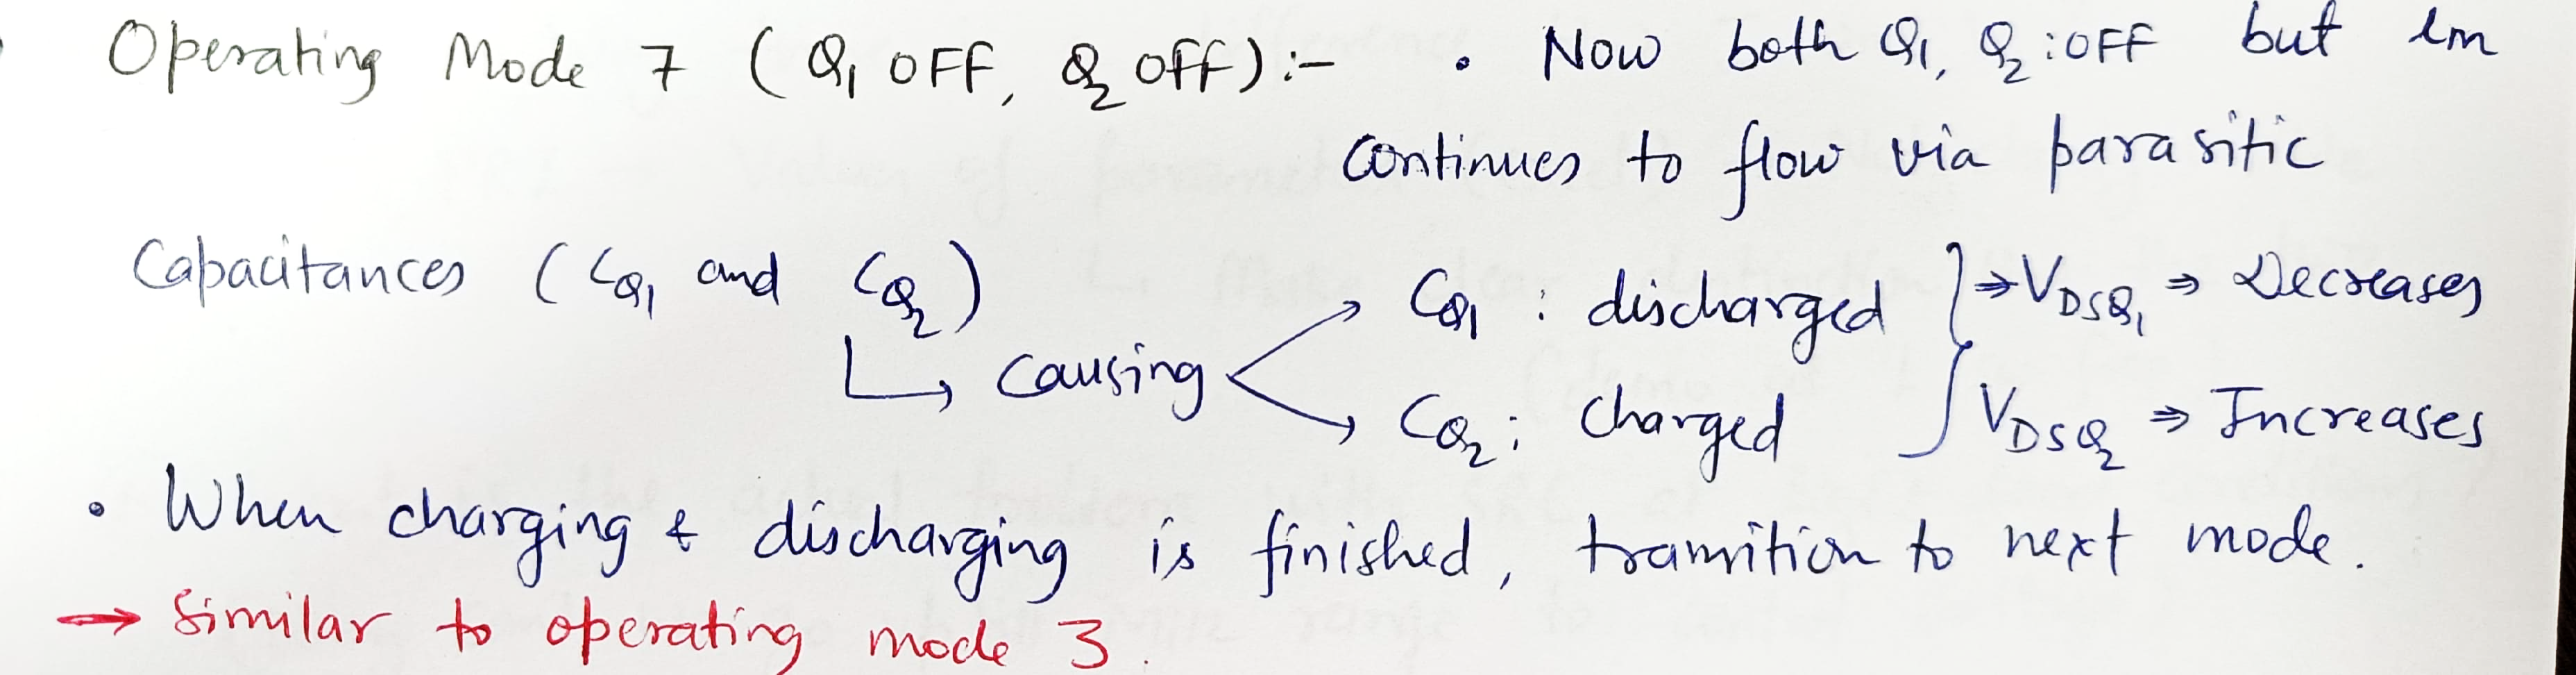 Operating Mode 7 (Q₁ OFF, Q₂ OFF):- • Now both Q₁, Q₂:OFF but im
continues to flow via parasitic
Capacitances (CQ₁ and CQ₂)
CQ₁ : discharged } ⇒ VDSQ₁ ⇒ Decreases
↳ causing
CQ₂ : charged VDSQ₂ ⇒ Increases
• When charging & discharging is finished, transition to next mode.
→ Similar to operating mode 3.